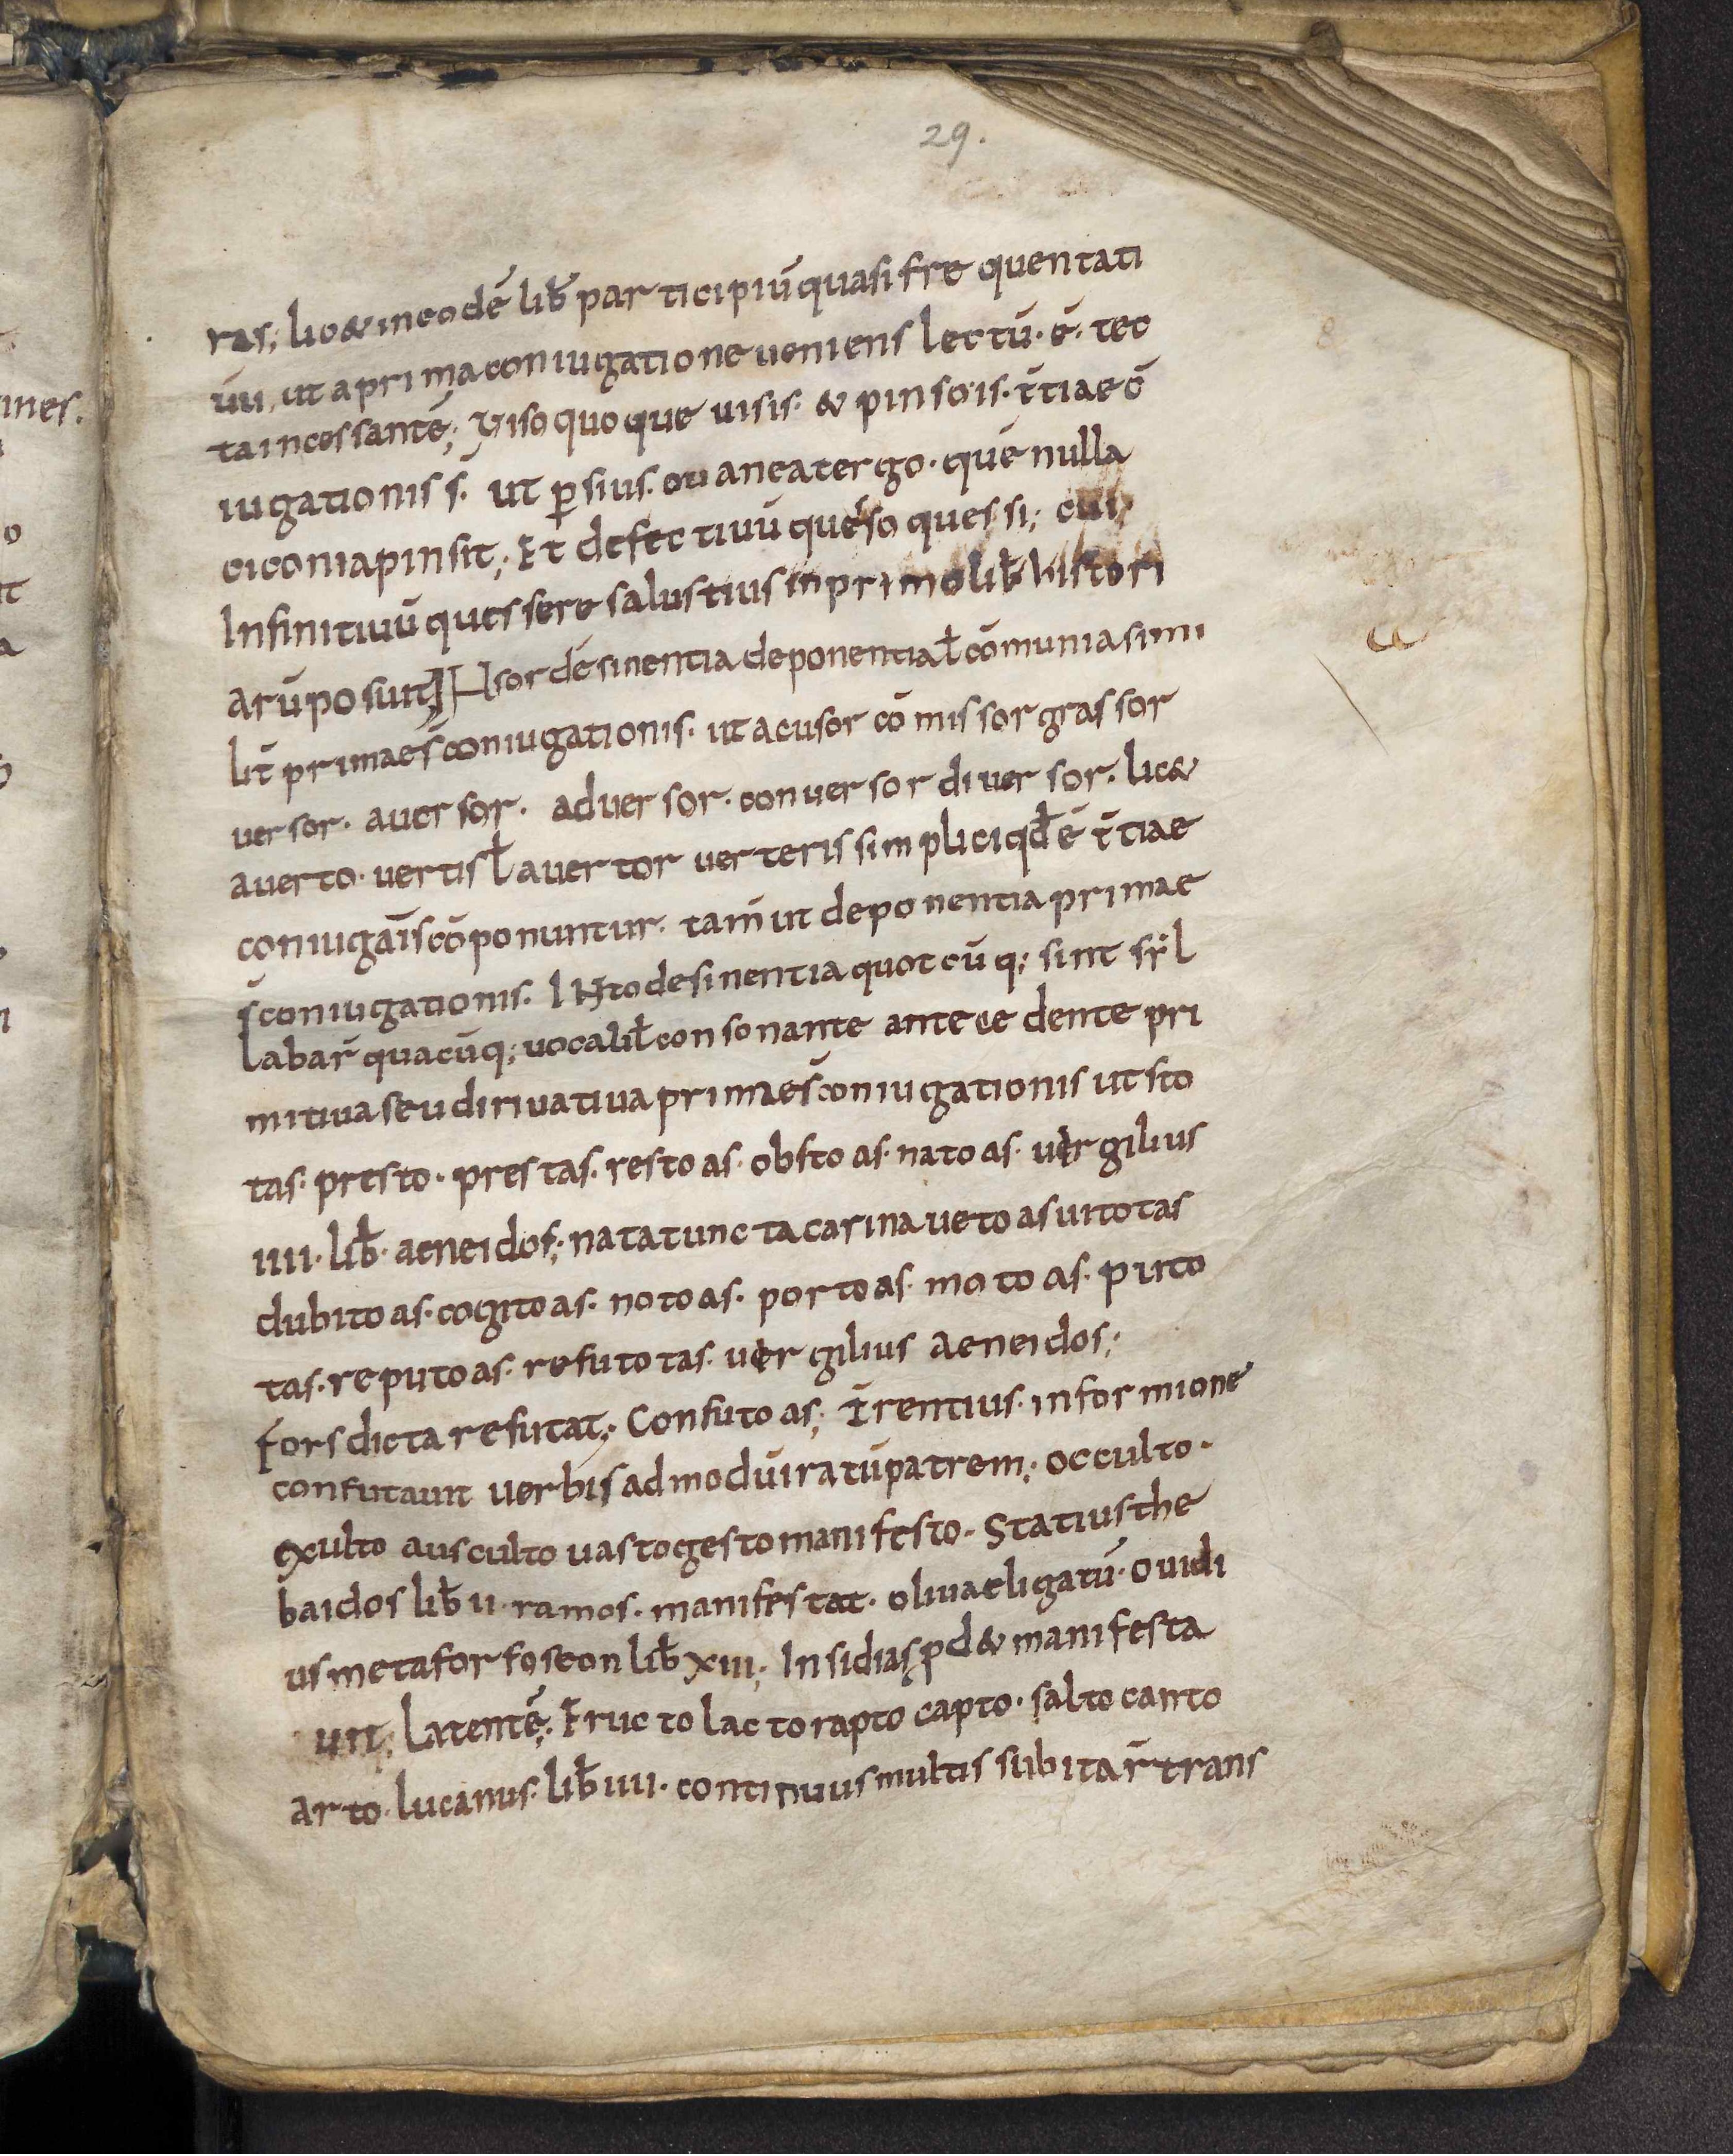 29.
ras; lic& in eodē lib̄ participiū quasi frequentati
uū, ut a prima coniugatione ueniens lectū. ē. tec
ta incessantē; Viso quoque uisis. & pinso is. t̄tiae cō
iugationis s̄. ut ꝑsius. o iane a tergo. quē nulla
ciconia pinsit; Et defectiuū queso quessi; cui,
Infinitiuū quessere salustius in primo lib̄ histori
arū posuit; IN sor desinentia deponentia ł cōmunia simi
lit̄ primae s̄ coniugationis. ut acusor cōmissor grassor
uersor. auersor. aduersor. conuersor diuersor. lic&
auerto. uertis ł auertor uerteris simplici qđ ē t̄tiae
coniugāis cōponuntur. tam̄ ut deponentia primae
s̄ coniugationis. IN to desinentia quotcūq; sint syl
labar̄ quacūq; uocali ł consonante antecedente pri
mitiua seu diriuatiua primae s̄ coniugationis ut sto
tas. presto. prestas. resto as. obsto as. nato as. uergilius
iiii. lib̄. aeneidos; natat uncta carina ueto as uito tas
dubito as. cogito as. noto as. porto as. moto as. puto
tas. reputo as. refuto tas. uergilius aeneidos;
fors dicta refutat; Confuto as; T̄rentius. in formione
confutauit uerbis admodū iratū patrem; occulto.
exulto ausculto uasto gesto manifesto. Statius the
baidos lib̄ ii. ramos. manifestat. oliuae ligatū. ouidi
us metaforfoseon lib̄ xiii; Insidias pd& manifesta
uit; Latentē; Eructo lacto rapto capto. salto canto
arto. lucanus. lib̄ iiii. continuus multis subitar̄ trans